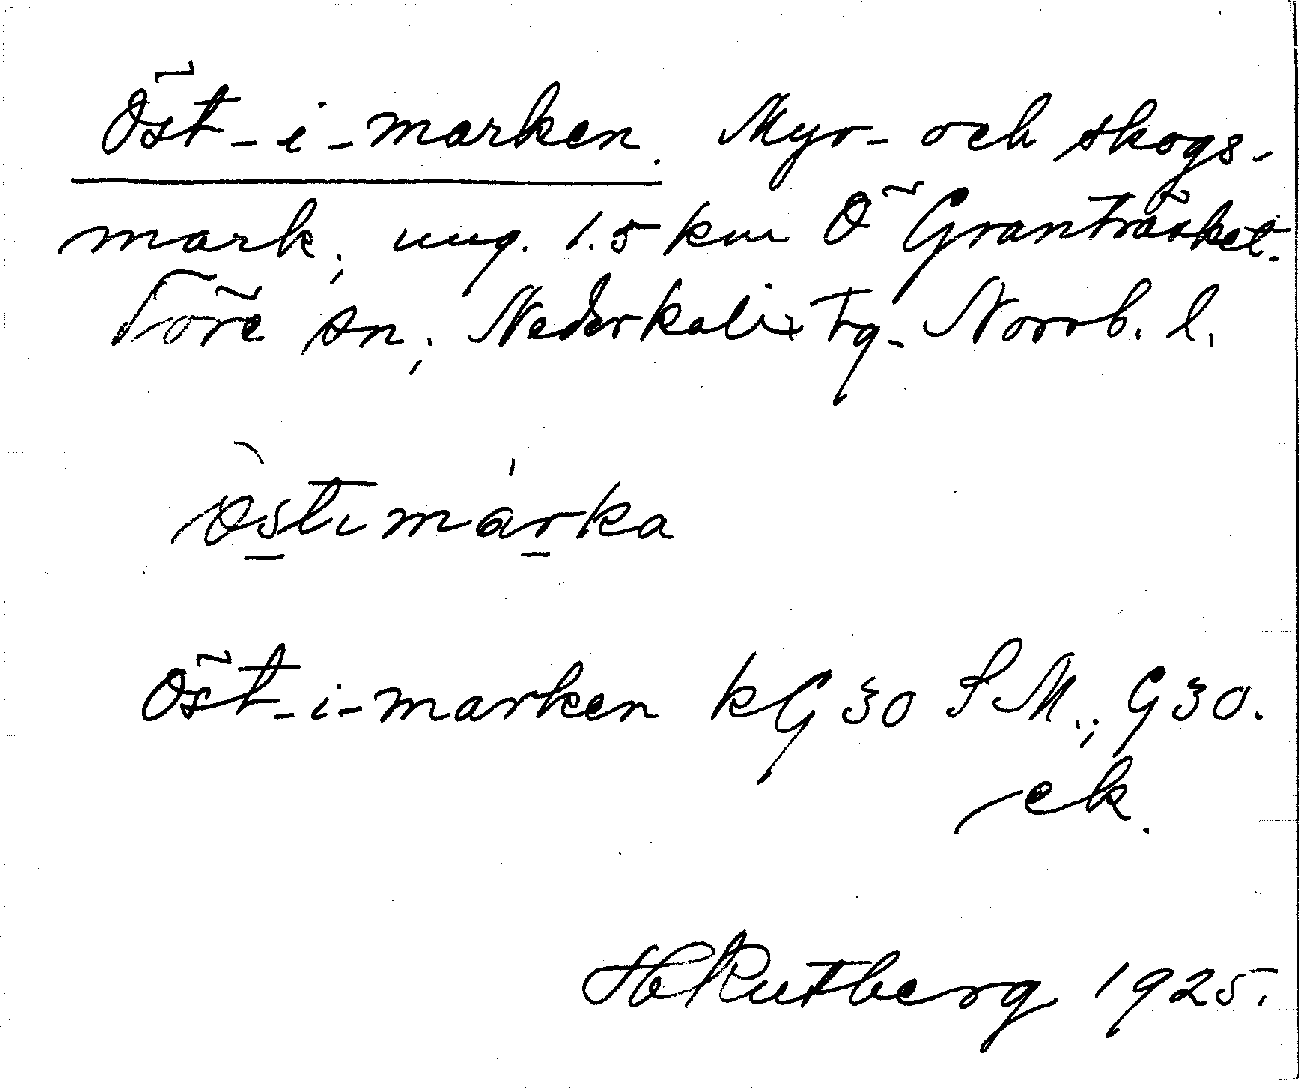 Öst-i-marken. Myr- och skogs-
mark, ung. 1.5 km Ö Granträsket.
Töre sn, Nederkalix tg. Norrb. l.
östimarka
Öst-i-marken kG 30 SM., G 30.
ek.
H Rutberg 1925.